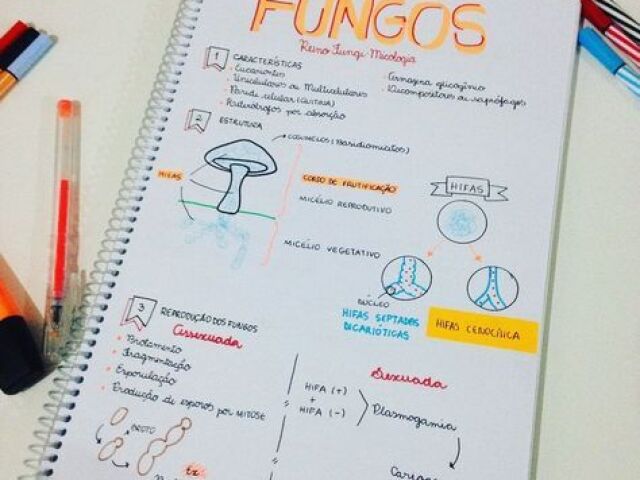 FUNGOS
Reino Fungi - Micologia
1 CARACTERÍSTICAS
• Eucariontes
• Unicelulares ou Multicelulares
• Parede celular (QUITINA)
• Heterótrofos por absorção
• Armazena glicogênio
• Decompositores ou saprófagos
2 ESTRUTURA
COGUMELOS (Basidiomicetos)
HIFAS
CORPO DE FRUTIFICAÇÃO
MICÉLIO REPRODUTIVO
MICÉLIO VEGETATIVO
HIFAS
NÚCLEO
HIFAS SEPTADAS
DICARIÓTICAS
HIFAS CENOCÍTICA
3 REPRODUÇÃO DOS FUNGOS
Assexuada
• Brotamento
• Fragmentação
• Esporulação
• Produção de esporos por MITOSE
BROTO
Sexuada
HIFA (+)
+
HIFA (-)
Plasmogamia